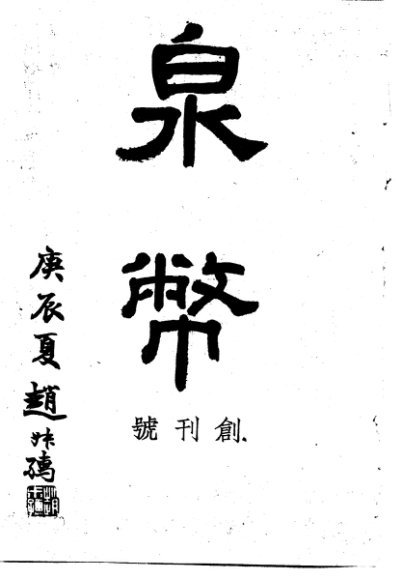 泉
幣
創刊號
庚辰夏趙叔孺